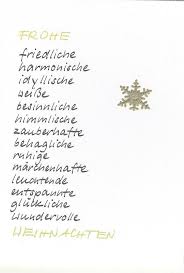 FROHE
friedliche
harmonische
idyllische
weiße
besinnliche
himmlische
zauberhafte
behagliche
ruhige
märchenhafte
leuchtende
entspannte
glückliche
wundervolle
WEIHNACHTEN